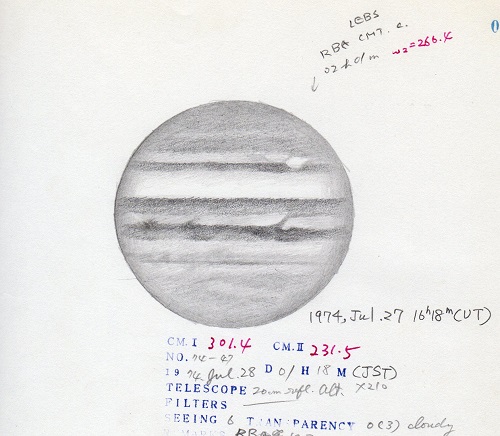 LEBS
RBA CMT. c.
02h 01m ω2=266.4
0
1974, Jul. 27 16h18m(UT)
CM.I 301.4 CM.II 231.5
NO. 74-47
1974 Jul. 28 D 01 H 18 M (JST)
TELESCOPE 20cm refl. alt. X210
FILTERS
SEEING 6 TRANSPARENCY 0(3) cloudy